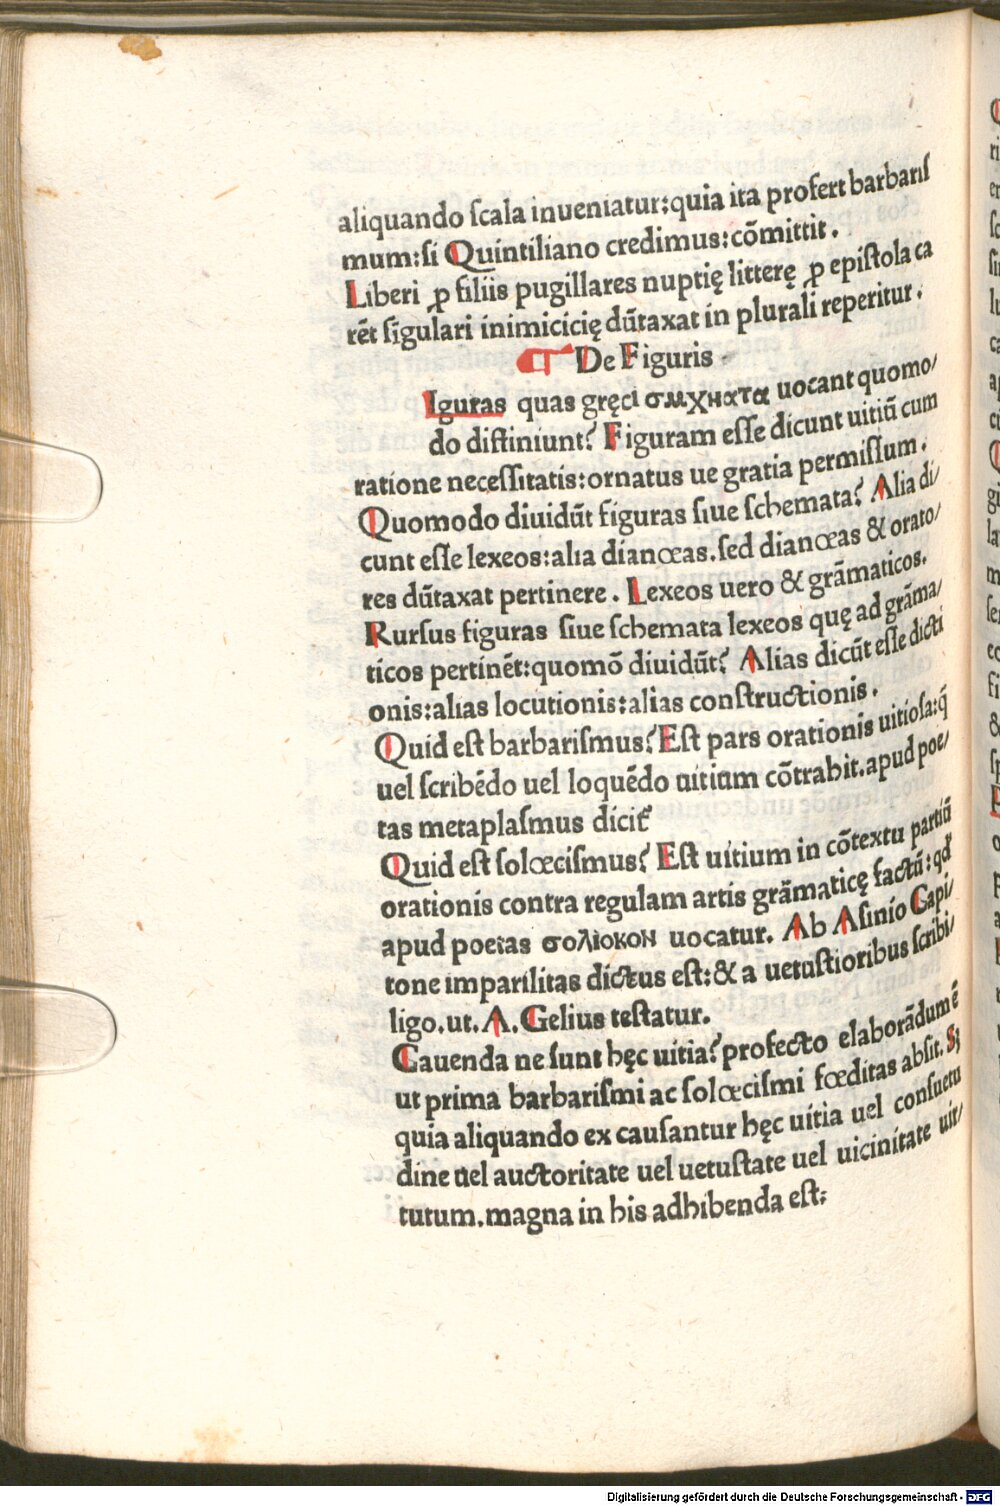 aliquando ſcala inueniatur:quia ita profert barbariſ
mum:ſi Quintiliano credimus:cōmittit.
Liberi ꝓ filiis pugillares nuptię litterę ꝓ epiſtola ca
rēt ſigulari inimicicię dūtaxat in plurali reperitur.
De Figuris
Iguras quas gręci σμχηατα uocant quomo/
do diſtiniunt? Figuram eſſe dicunt uitiū cum
ratione neceſſitatis:ornatus ue gratia permiſſum.
Quomodo diuidūt figuras ſiue ſchemata? Alia di/
cunt eſſe lexeos:alia dianœas.ſed dianœas & orato/
res dūtaxat pertinere. Lexeos uero & grāmaticos.
Rurſus figuras ſiue ſchemata lexeos quę ad grāma/
ticos pertinēt:quomō diuidūt? Alias dicūt eſſe dicti
onis:alias locutionis:alias conſtructionis.
Quid eſt barbariſmus? Eſt pars orationis uitioſa:q̄
uel ſcribēdo uel loquēdo uitium cōtrahit.apud poe/
tas metaplaſmus dicit᷑
Quid eſt ſolœciſmus? Eſt uitium in cōtextu partiū
orationis contra regulam artis grāmaticę factū:qd̄
apud poetas σολιοκον uocatur. Ab Aſinio Capi/
tone imparilitas dictus eſt:& a uetuſtioribus ſcribi/
ligo.ut. A. Gelius teſtatur.
Cauenda ne ſunt hęc uitia? profecto elaborādum ē
ut prima barbariſmi ac ſolœciſmi fœditas abſit. Sꝫ
quia aliquando ex cauſantur hęc uitia uel conſuetu
dine uel auctoritate uel uetuſtate uel uicinitate uir/
tutum.magna in his adhibenda eſt:
Digitalisierung gefördert durch die Deutsche Forschungsgemeinschaft - DFG